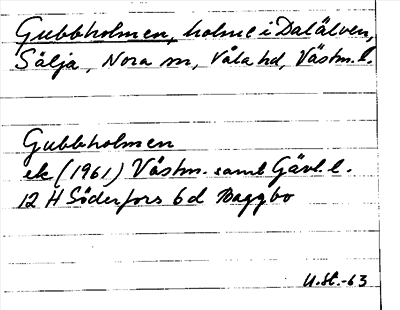 Gubbholmen, holme i Dalälven,
Sälja, Nora sn, Våla hd, Västm. l.
Gubbholmen
ek (1961) Västm. samt Gävl. l.
12 H Söderfors 6 d Baggbo
U.St.-63